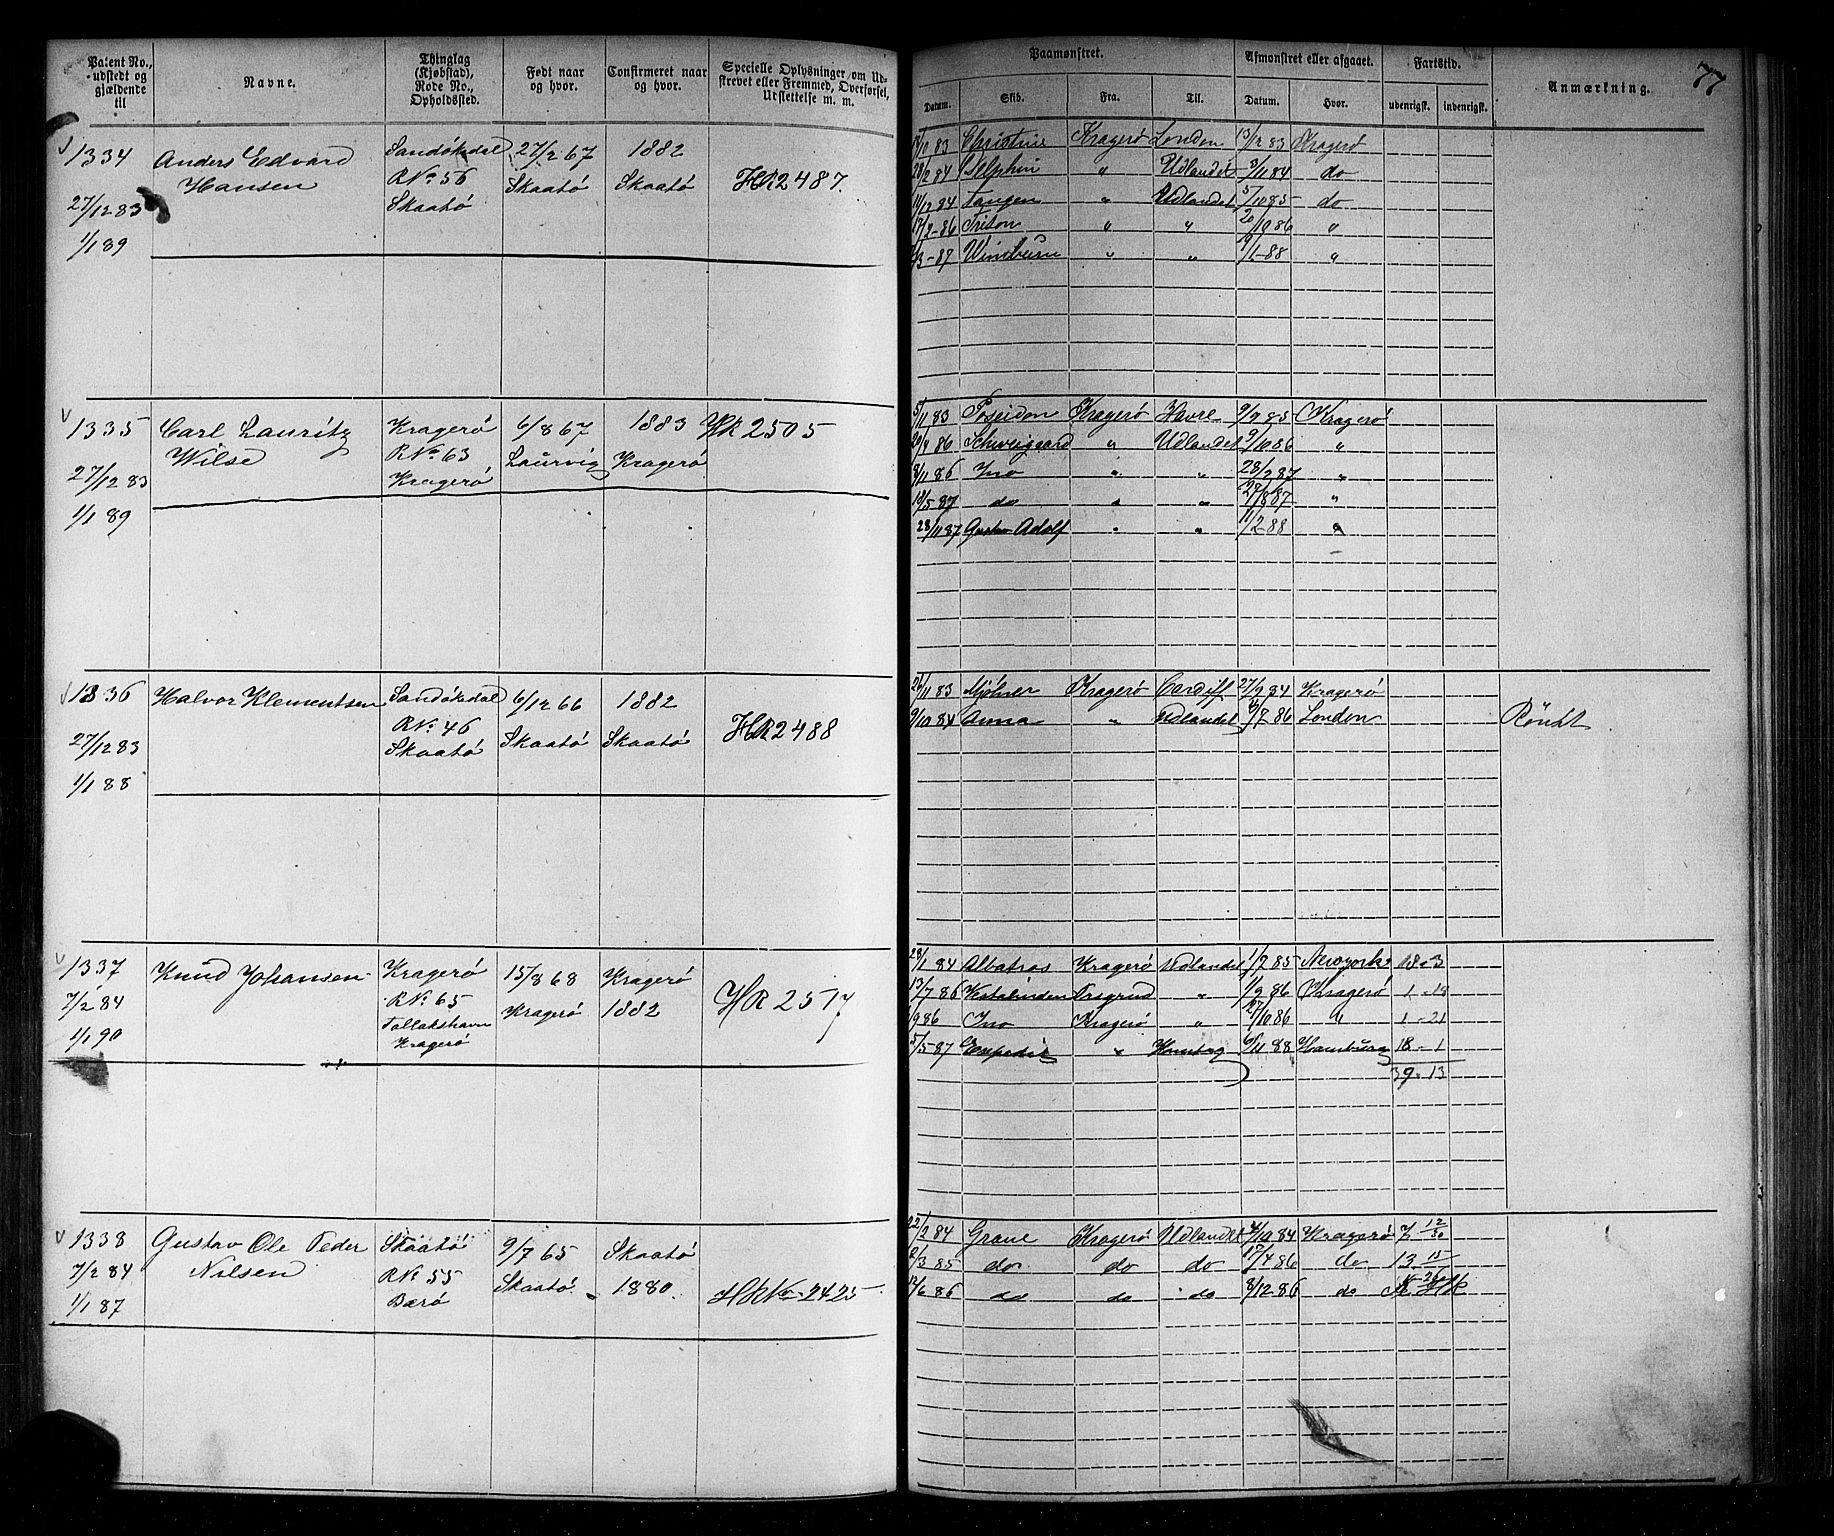 Patent No., udstedt og gjældende til
Navne.
Thinglag (Kjøbstad), Rode No., Opholdssted.
Født naar og hvor.
Confirmeret naar og hvor.
Specielle Oplysninger om Udskrevet eller Fremmed, Overførsel, Udslettelse m. m.
Paamønstret.
Datum. Skib. Fra. Til.
Afmønstret eller afgaaet.
Datum. Hvor.
Fartstid.
udenrigsk. indenrigsk.
Anmærkning.
77
1334
27/12 83
1/1 89
Anders Edvard
Hansen
Sandøkedal
RNo 56
Skaatø
27/2 67
Skaatø
1882
Skaatø
HR 2487.
83 Christine Kragerø London 13/2 83 Kragerø
2 84 Delphin " Udlandet 3/11 84 do
12 84 Tangen " Udlandet 5/10 85 do
17/2-86 Triton " " 20/10 86 "
3-87 Wimburn " " 9/1-88 "
1335
27/12 83
1/1 89
Carl Lauritz
Wilse
Kragerø
RNo 63
Kragerø
6/8 67
Laurvig
1883
Kragerø
HR 2505
5/11 83 Poseidon Kragerø Havre 9/9 85 Kragerø
86 Schweigaard " Udlandet 9/10 86 "
8/11 86 Ino " " 28/2 87 "
18/5-87 do " " 27/8 87 "
28/11 87 Gustav Adolf " " 11/2-88 "
1336
27/12 83
1/1 88
Halvor Klementsen
Sandøkedal
RNo 46
Skaatø
6/12 66
Skaatø
1882
Skaatø
HR 2488
26/11 83 Mjølner Kragerø Cardiff 27/9 84 Kragerø
9/10 84 Anna " Udlandet 6/7 86 London
Rømt
1337
7/2 84
1/1 90
Knud Johansen
Kragerø
RNo 65
Tallakshavn
Kragerø
15/8 68
Kragerø
Kragerø
1882
HR 2517
28/1 84 Albatros Kragerø Udlandet 1/7 85 Newyork 18-3
13/7 86 Vestalinden Porsgrund " 1/9 86 Kragerø 1-18
9 86 Ino Kragerø " 27/10 86 " 1-21
5/5-87 Expedit " 6/11 88 Hamburg 18-1
39-13
1338
7/2 84
1/1 87
Gustav Ole Peder
Nilsen
Skaatø
RNo 55
Barø
9/7 65
Skaatø
Skaatø
1880
HR No 2425
22/2 84 Grane Kragerø Udlandet 4/10 84 Kragerø 7 12/30
2/3 85 do do do 17/4 86 do 13 15
12/6 86 do do do 8/12 86 do